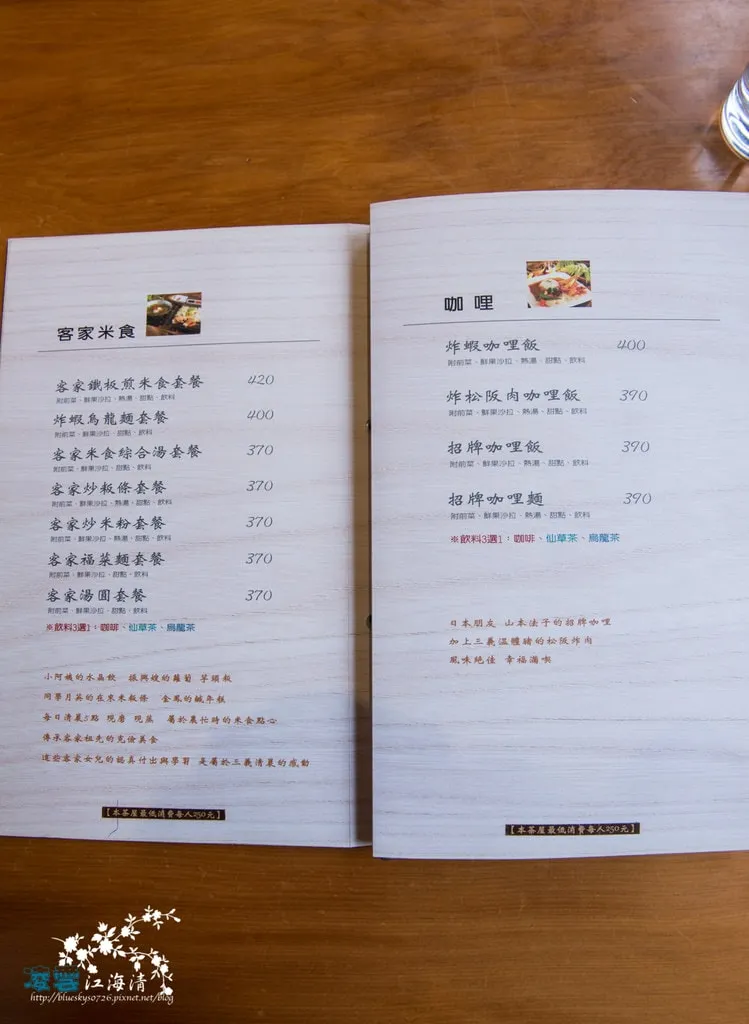 客家米食
客家鐵板煎米食套餐 420
附前菜、鮮果沙拉、熱湯、甜點、飲料
炸蝦烏龍麵套餐 400
附前菜、鮮果沙拉、甜點、飲料
客家米食綜合湯套餐 370
附前菜、鮮果沙拉、甜點、飲料
客家炒粄條套餐 370
附前菜、鮮果沙拉、熱湯、甜點、飲料
客家炒米粉套餐 370
附前菜、鮮果沙拉、熱湯、甜點、飲料
客家福菜麵套餐 370
附前菜、鮮果沙拉、甜點、飲料
客家湯圓套餐 370
附前菜、鮮果沙拉、甜點、飲料
※飲料3選1：咖啡、仙草茶、烏龍茶
小阿姨的水晶餃 振興嫂的蘿蔔 芋頭粄
同學月英的在來米粄條 金鳳的鹹年糕
每日清晨5點 現磨 現蒸 屬於農忙時的米食點心
傳承客家祖先的克儉美食
這些客家女兒的認真付出與學習 是屬於三義清晨的感動
【本茶屋最低消費每人250元】
咖哩
炸蝦咖哩飯 400
附前菜、鮮果沙拉、熱湯、甜點、飲料
炸松阪肉咖哩飯 390
附前菜、鮮果沙拉、熱湯、甜點、飲料
招牌咖哩飯 390
附前菜、鮮果沙拉、熱湯、甜點、飲料
招牌咖哩麵 390
附前菜、鮮果沙拉、熱湯、甜點、飲料
※飲料3選1：咖啡、仙草茶、烏龍茶
日本朋友 山本法子的招牌咖哩
加上三義溫體豬的松阪炸肉
風味絕佳 幸福滿喫
【本茶屋最低消費每人250元】
江海清
http://bluesky0726.pixnet.net/blog